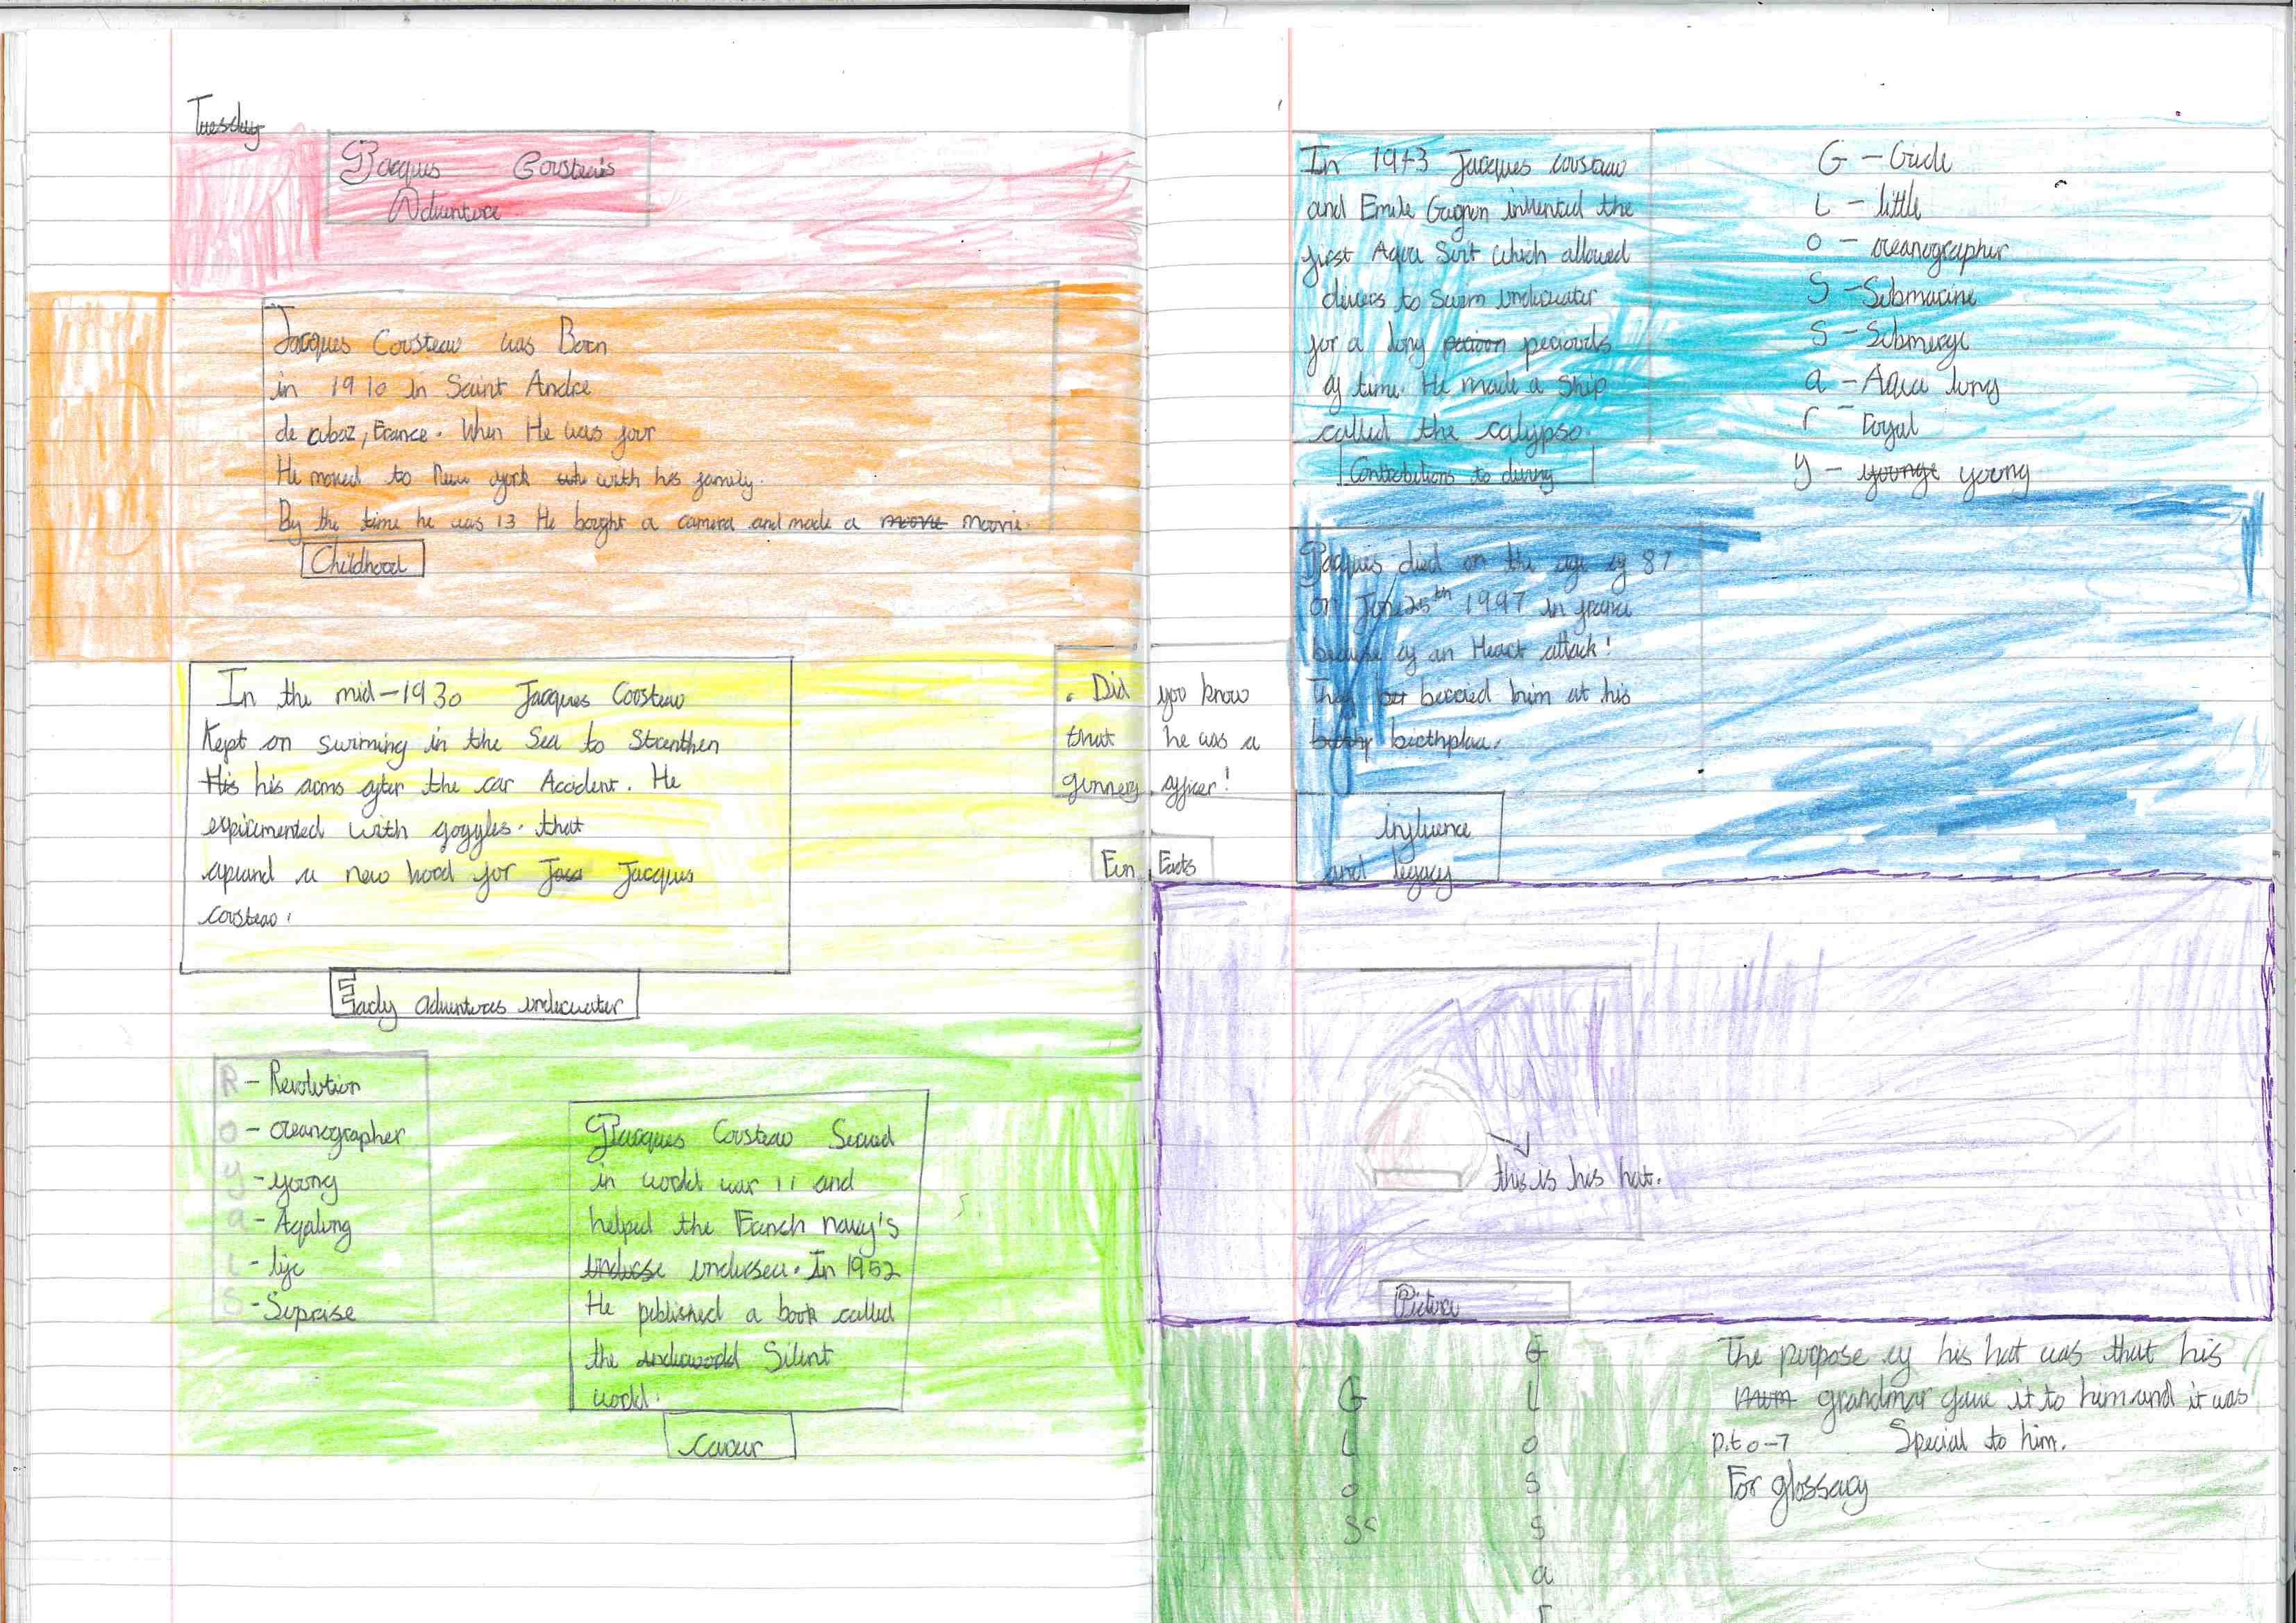 Tuesday
Jacques Cousteau's
Adventure
Jacques Cousteau was Born
in 1910 in Saint Andre
de cubaz, France. When He was four
He moved to New york with his family.
By the time he was 13 He bought a camera and made a movie movie.
Childhood
In the mid-1930 Jacques Cousteau
Kept on swiming in the Sea to Strenthen
His his arms after the car Accident. He
expiremented with goggles. that
opend a new hood for Jacques
cousteau.
Early adventures underwater
R - Revolution
O - oceanographer
y - yoong
a - Aqalung
L - life
S - Suprise
Jacques Cousteau Served
in world war 11 and
helped the French navy's
underse undersea. In 1952
He published a book called
the underworld Silent
world.
Career
. Did you know
that he was a
gunnery officer!
Fun Facts
In 1943 Jacques cousteau
and Emile Gagnon invented the
first Aqua Suit which allowed
divers to Swim underwater
for a long periouds
of time. He made a Ship
called the calypso.
Contrebutions to diving
G - Guide
L - little
o - oceanographer
S - Submarine
S - Submerge
a - Aqua lung
r - royal
y - younge yoong
Jacques died on the age of 87
on June 25th 1997 in france
because of an Heart attack!
They ber beried him at his
birthplace.
influence
and legacy
this is his hat.
Picture
G
L
o
S
G
L
o
s
s
a
r
The purpose of his hat was that his
mum grandmar gave it to him and it was
p.t o-7 Special to him.
For glossary